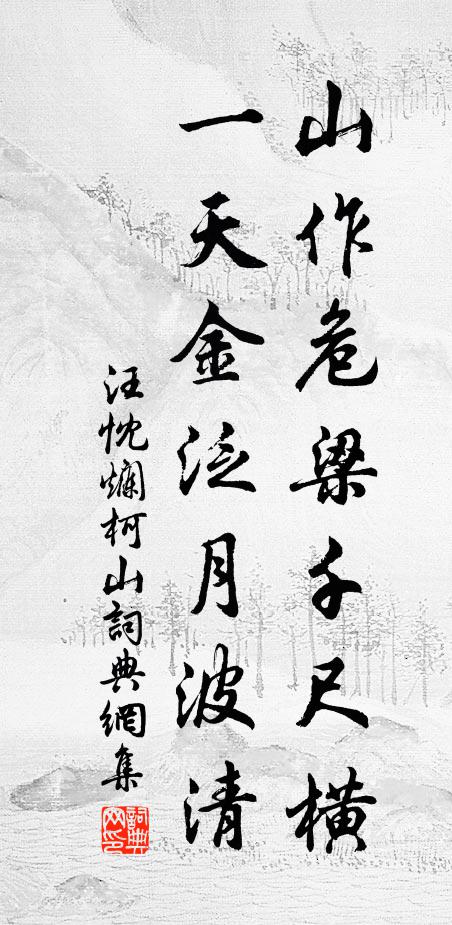 山作危梁千尺橫
一天金泛月波清
汪忱爛柯山詞典網集
詞典
网印